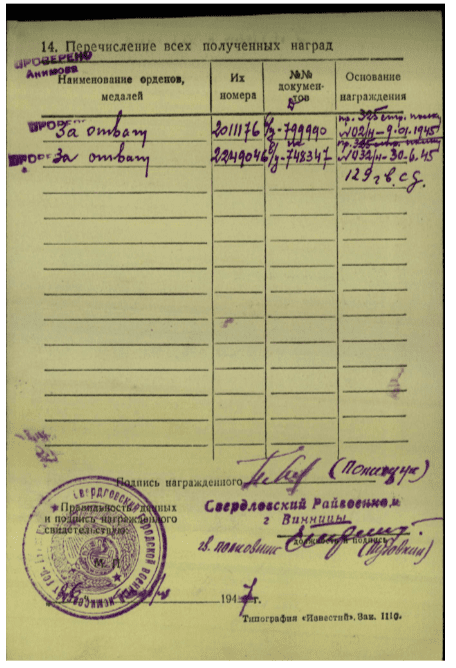 14. Перечисление всех полученных наград
ПРОВЕРЕНО
Анимова
Наименование орденов, медалей
Их номера
№№ докумен-тов
Основание награждения
За отвагу 2011176 б/д-799990 пр. 325 стр. полку №02/н-9.01.1945
За отвагу 2249046 в/д-748347 №032/н-30.6.45
129 гв. сд.
Подпись награжденного (Полищук)
Правильность данных
и подпись награжденного
свидетельствую:
Свердловский Райвоенком
г Винницы
М. П.
гв. полковник
должность и подпись
1947 г.
Типография «Известий». Зак. 1110.